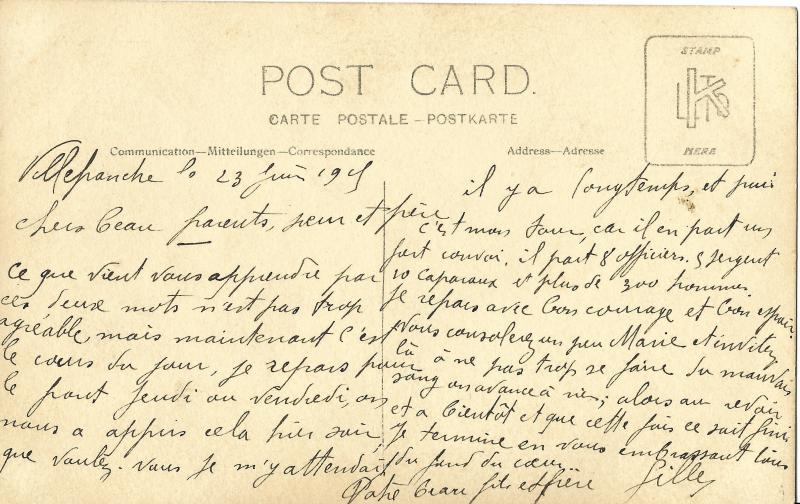 POST CARD.
CARTE POSTALE – POSTKARTE
Communication—Mitteilungen—Correspondance
Address—Adresse
STAMP
HERE
Villefranche le 23 Juin 1915
chers beau parents, sœur et frère
Ce que vient vous apprendre par
ces deux mots n'est pas trop
agréable, mais maintenant c'est
le cours du jour, je repars pour
le front Jeudi ou vendredi, on
nous a appris cela hier soir,
que voulez-vous je m'y attendait
il y a longtemps, et puis
c'est mon tour, car il en part un
fort convoi. il part 8 officiers. 5 sergent
10 caporaux et plus de 300 hommes
Je repars avec bon courage et bon espoir.
Vous consolerez un peu Marie et invitez
là à ne pas trop se faire du mauvais
sang on avance à rien; alors au revoir
et a bientôt et que cette fois ce soit fini
Je termine en vous embrassant tous
du fond du cœur.
Votre beau fils et frère Gilles